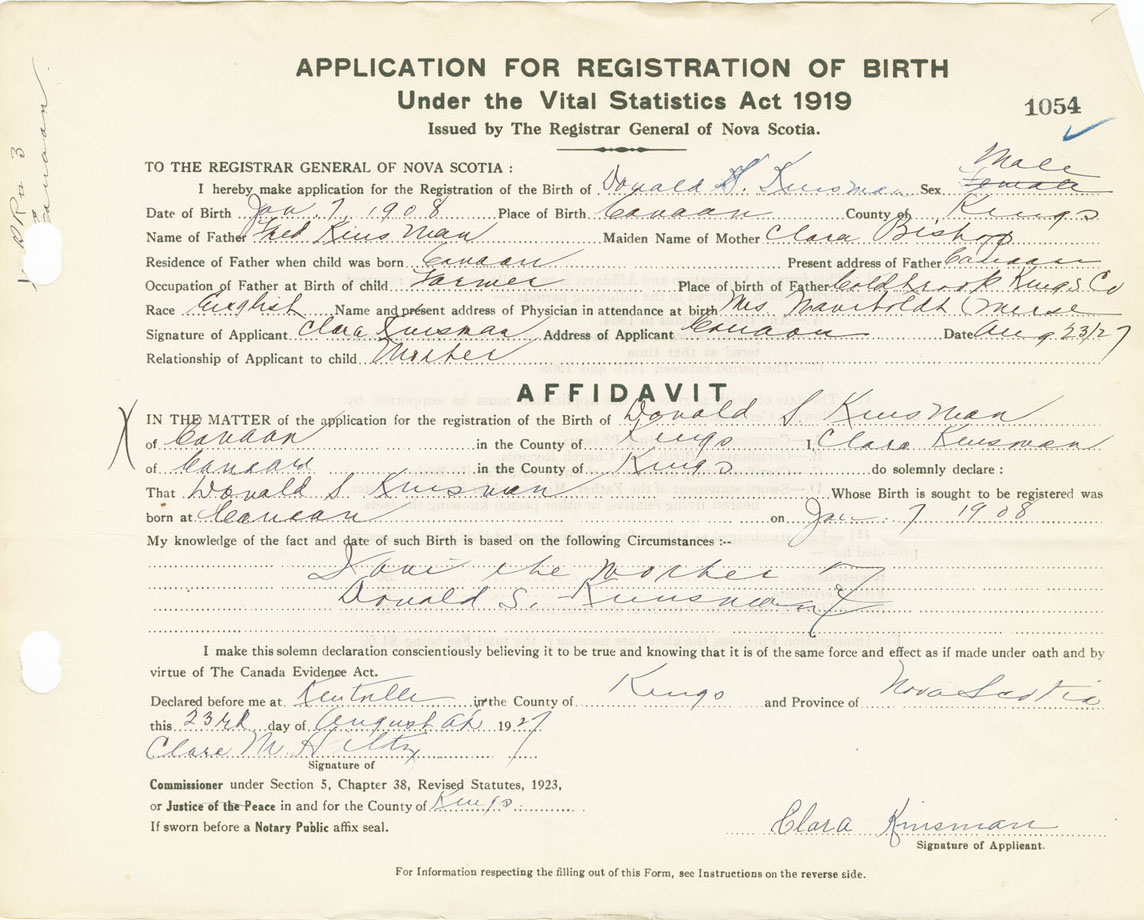 APPLICATION FOR REGISTRATION OF BIRTH
Under the Vital Statistics Act 1919
1054
Issued by The Registrar General of Nova Scotia.
Canaan
TO THE REGISTRAR GENERAL OF NOVA SCOTIA :
I hereby make application for the Registration of the Birth of Donald S. Kinsman Sex Male Female
Date of Birth Jan. 7, 1908 Place of Birth Canaan County of Kings
Name of Father Fred Kinsman Maiden Name of Mother Clara Bishop
Residence of Father when child was born Canaan Present address of Father Canaan
Occupation of Father at Birth of child Farmer Place of birth of Father Coldbrook Kings Co
Race English Name and present address of Physician in attendance at birth Mrs. Nurse
Signature of Applicant Clara Kinsman Address of Applicant Canaan Date Aug 23/27
Relationship of Applicant to child Mother
AFFIDAVIT
IN THE MATTER of the application for the registration of the Birth of Donald S. Kinsman
of Canaan in the County of Kings I Clara Kinsman
of Canaan in the County of Kings do solemnly declare :
That Donald S Kinsman Whose Birth is sought to be registered was
born at Canaan on Jan 7 1908
My knowledge of the fact and date of such Birth is based on the following Circumstances :--
I am the mother of
Donald S. Kinsman
I make this solemn declaration conscientiously believing it to be true and knowing that it is of the same force and effect as if made under oath and by
virtue of The Canada Evidence Act.
Declared before me at Kentville in the County of Kings and Province of Nova Scotia
this 23rd day of August 1927
Clare M
Signature of
Commissioner under Section 5, Chapter 38, Revised Statutes, 1923,
or Justice of the Peace in and for the County of Kings
If sworn before a Notary Public affix seal.
Clara Kinsman
Signature of Applicant.
For Information respecting the filling out of this Form, see Instructions on the reverse side.